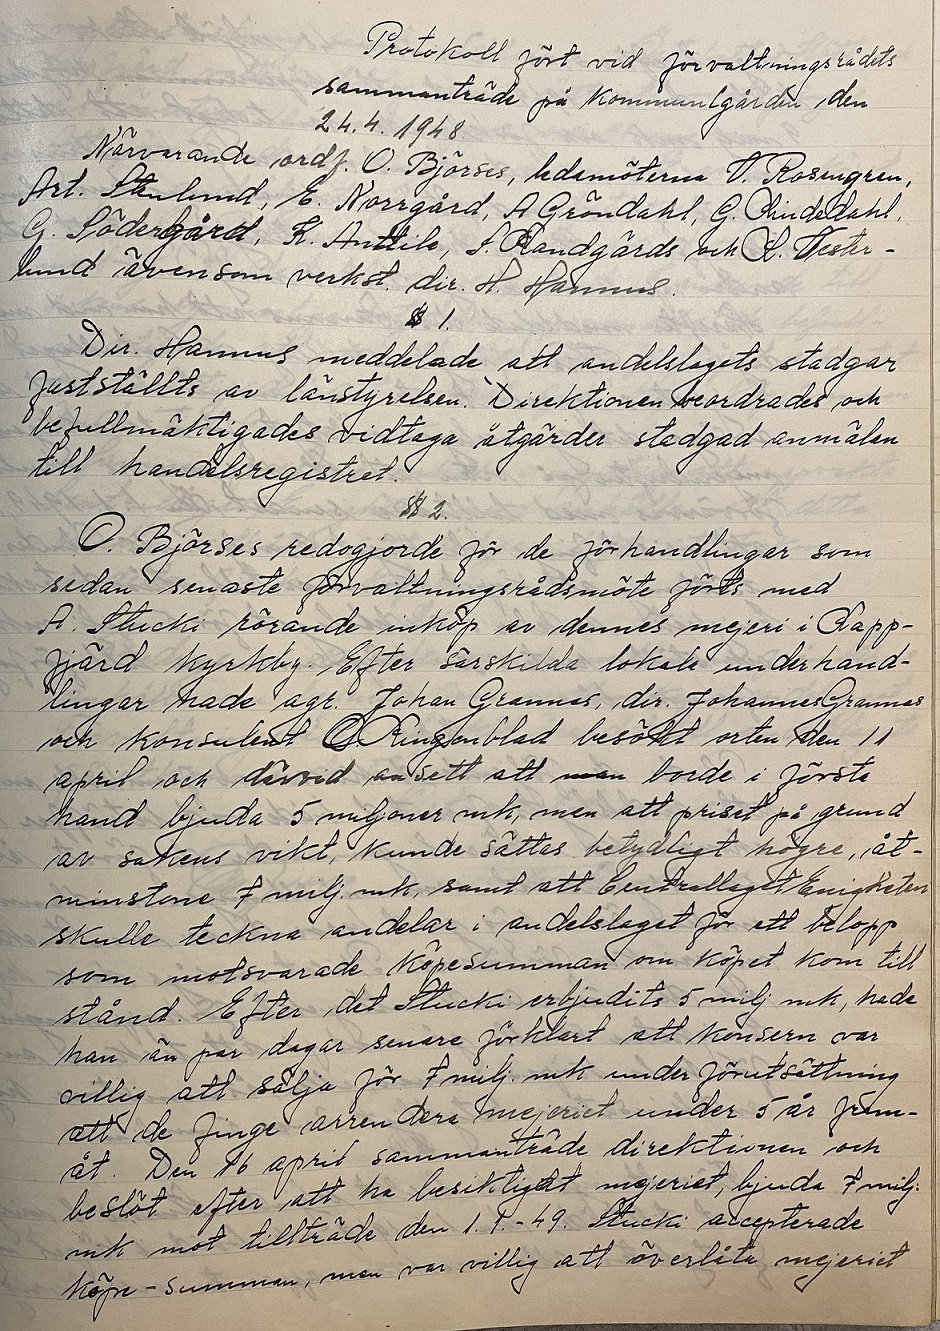 Protokoll fört vid förvaltningsrådets
sammanträde på kommunlgården den
24.4. 1948
Närvarande ordf. O. Björses, ledamöterna V. Rosengren,
Art. Stenlund, E. Norrgård, A Gröndahl, G. Lindedahl,
G. Södergård, K. Anttila, S. Randgårds och L. Vester-
lund ävensom verkst. dir. H. Hannus.
§ 1.
Dir. Hannus meddelade att andelslagets stadgar
fastställts av länstyrelsen. Direktionen beordrades och
befullmäktigades vidtaga åtgärder stadgad anmälan
till handelsregistret.
§ 2.
O. Björses redogjorde för de förhandlingar som
sedan senaste förvaltningsrådsmöte förts med
A. Stucki rörande inköp av dennes mejeri i Lapp-
fjärd kyrkby. Efter särskilda lokala underhand-
lingar hade agr. Johan Grannas, dir. Johannes Grannas
och konsulent O Ringenblad besökt orten den 11
april och därvid ansett att man borde i första
hand bjuda 5 miljoner mk, men att priset på grund
av sakens vikt, kunde sättas betydligt högre, åt-
minstone 7 milj. mk, samt att Centrallaget Enigheten
skulle teckna andelar i andelslaget för ett belopp
som motsvarade köpesumman om köpet kom till
stånd. Efter det Stucki erbjudits 5 milj mk, hade
han än par dagar senare förklart att konsern var
villig att sälja för 7 milj. mk under förutsättning
att de finge arrendera mejeriet under 5 år fram-
åt. Den 16 april sammanträde direktionen och
beslöt efter att ha besiktigat mejeriet, bjuda 7 milj.
mk mot tillträde den 1.1.-49. Stucki accepterade
köpe-summan, men var villig att överlåta mejeriet